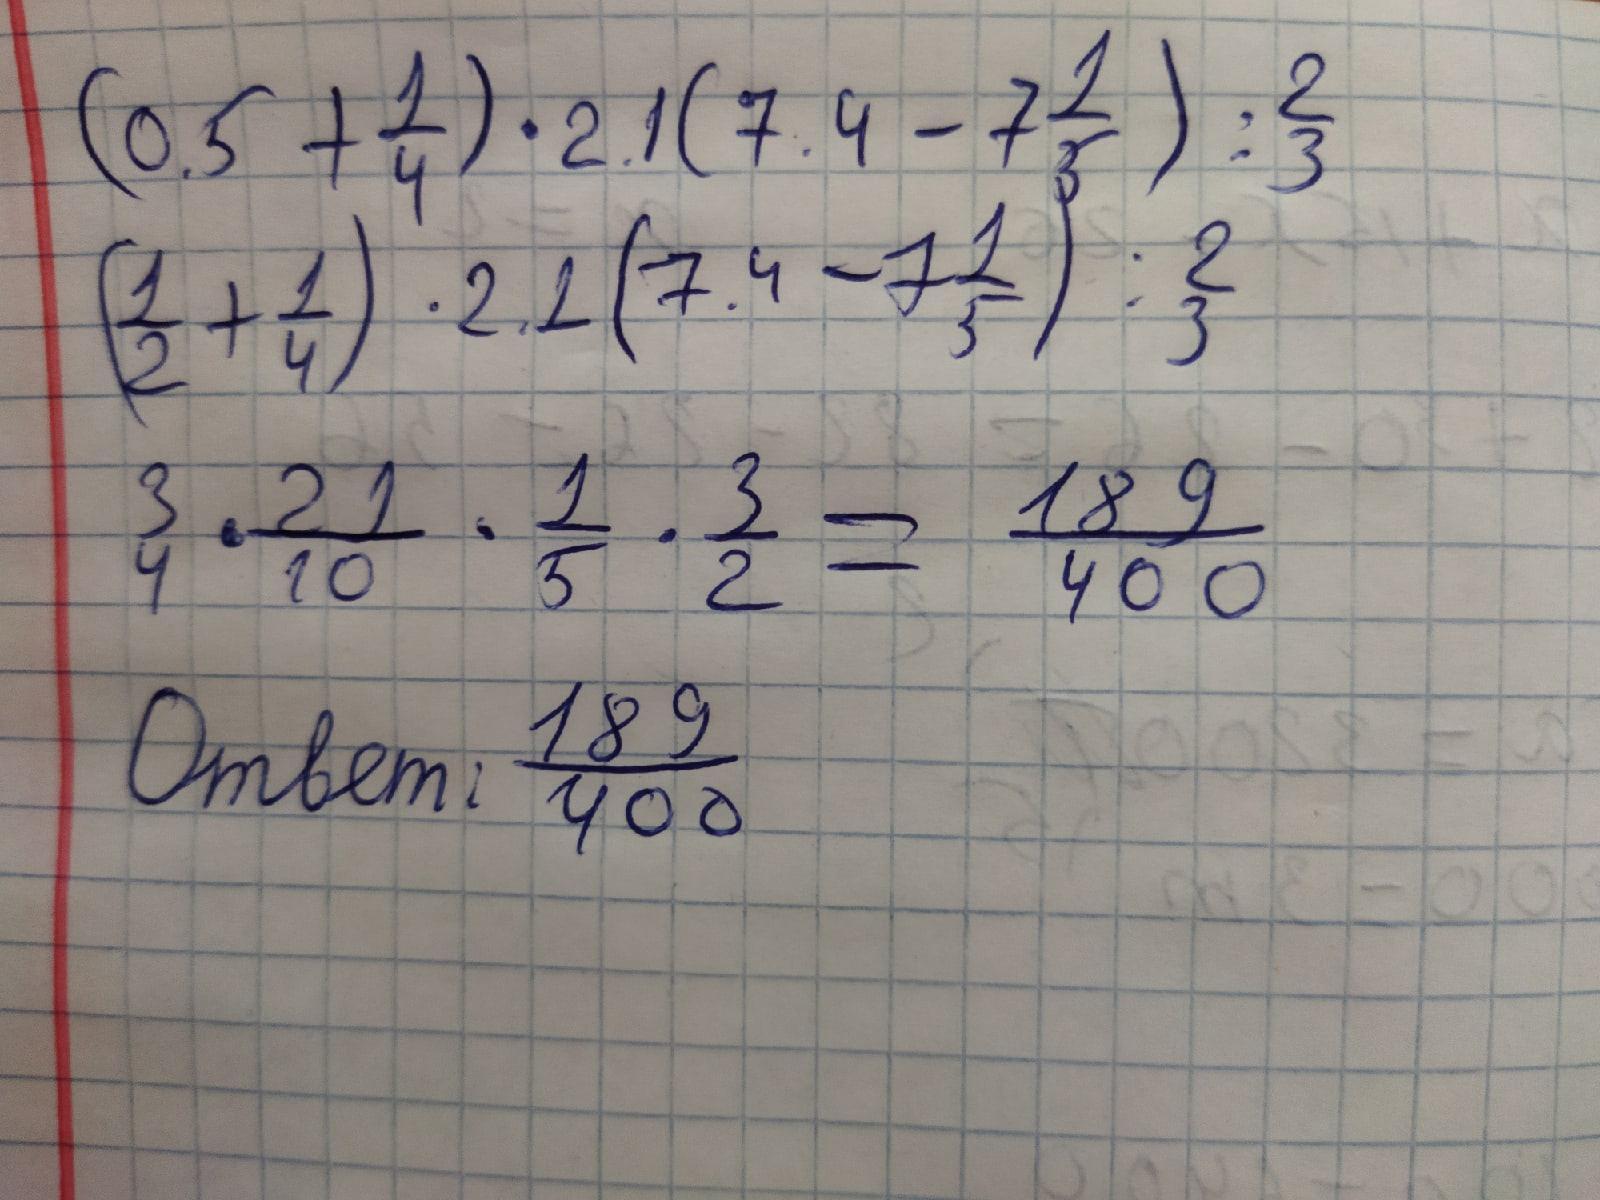 (0.5 + 1/4) · 2.1(7.4 - 7 1/5) : 2/3
(1/2 + 1/4) · 2.1(7.4 - 7 1/5) : 2/3
3/4 · 21/10 · 1/5 · 3/2 = 189/400
Ответ: 189/400